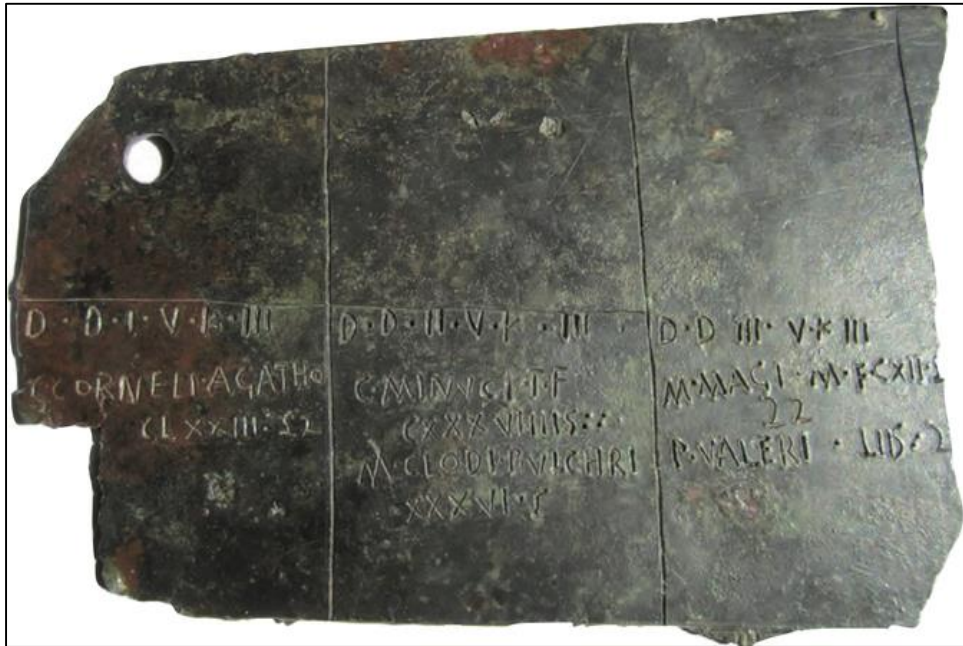 D·D·I·V·K·III
C·CORNELI·AGATHO
CLXXIII·S2
D·D·II·V·K·III·
C·MINVCI·T·F
CXXXVIIIIS::
M·CLODI·PVLCHRI
XXXVI·S
D·D·III·V·K·III
M·MAGI·M·F·CXII·2
22
P·VALERI·LIIS:2